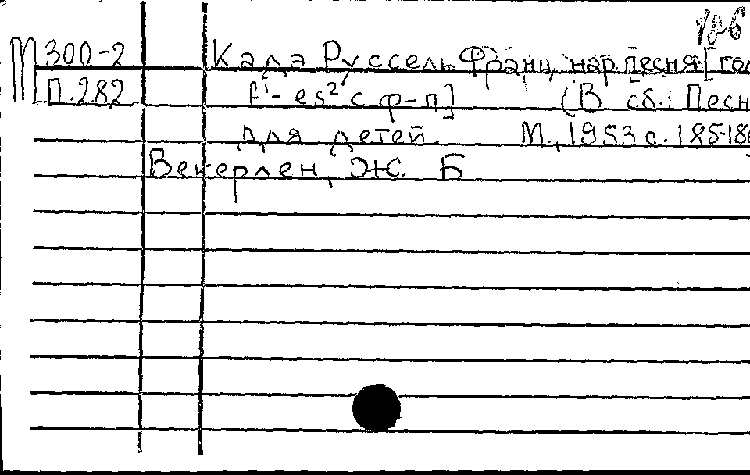 М 300-2 Када Руссель. Франц. нар. песня [гол
П.282 f¹- es² с ф-п] (В сб.: Песн
для детей М., 1953 с. 185-186
Векерлен, Ж. Б